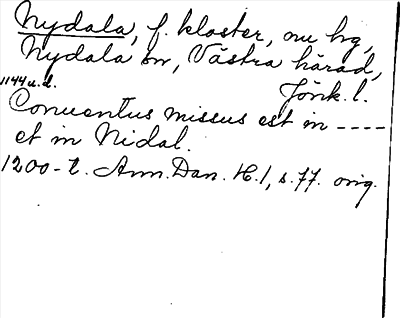 Nydala, f. kloster, nu hg,
Nydala sn, Västra härad,
Jönk. l.
1144 u.d.
Conventus missus est in ----
et in Nidal.
1200-t. Ann. Dan. H. 1, s. 77. orig.